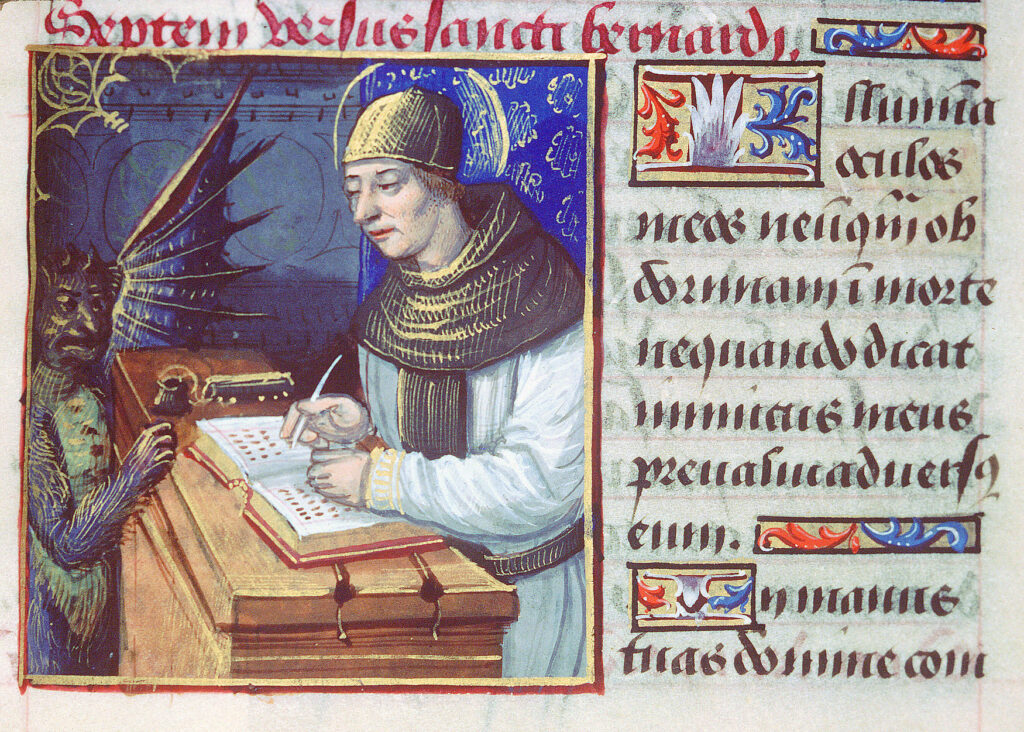 Septem versus sancti bernardi.
Illumīa
oculos
meos neūqm̄ ob
dormiam ī morte
nequando dicat
inimicus meus
prevalui adversꝰ
eum.
In manus
tuas domine com